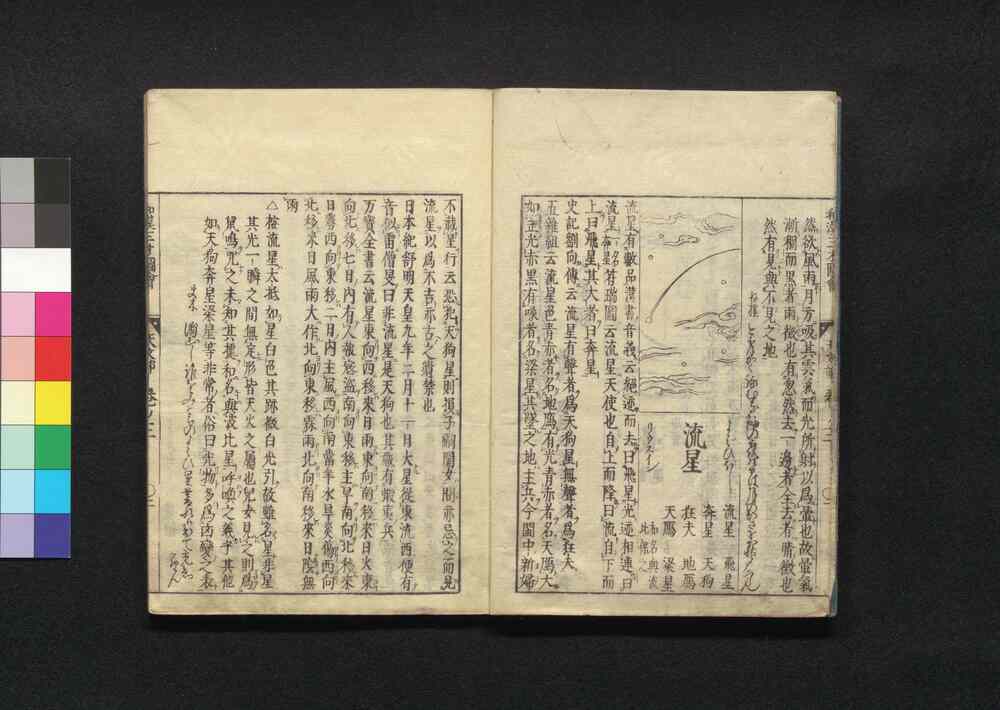 然欲風雨月方吸其雲氣而光所射以爲暈也故暈氣
漸稠而黒者雨徴也有忽然去一邊者全去者晴徴也
然有見與不見之地
流星
よばひぼし
リウスイン
流星 飛星
奔星 天狗
枉矢 地鴈
天鴈 梁星
和名與波
比保之
流星有數品漢書音義云絕迹而去曰飛星光迹相連曰
流星一名奔星 符瑞圖云流星天使也自上而降曰流自下而
上曰飛星其大者曰奔星
史記劉向傳云流星有聲者爲天狗星無聲者爲枉矢
五雜組云流星色青赤者名地鴈有光青赤者名天鴈大
如 光赤黒有喙者名梁星其墜之地主兵今閩中新婦
不戴星行云恐犯天狗星則損子嗣閨女則 忌之而見
流星以爲不吉亦古之 禁也
日本紀舒明天皇九年二月十一日大星從東流西便有
音似雷僧旻曰非流星是天狗也其歳有蝦夷兵
万寳全書云流星東向西移來日雨東向南移來日大東
向北移七日内有人 盗 南向東移主旱南向北移來
日 西向東移二日内主風西向南當年水旱災傷西向
北移來日風雨大作北向東移霖雨北向南移來日陰無
雨
△按流星大抵如星白色其跡微白光引故雖名星非星
其光一瞬之間無定形皆天火之屬也兒女見之則爲
鼠鳴咒之未知其據和名與波比星呼喚之義乎其他
如天狗奔星梁星等非常者俗曰光物多爲凶變之表
和漢三才圖會
天文部